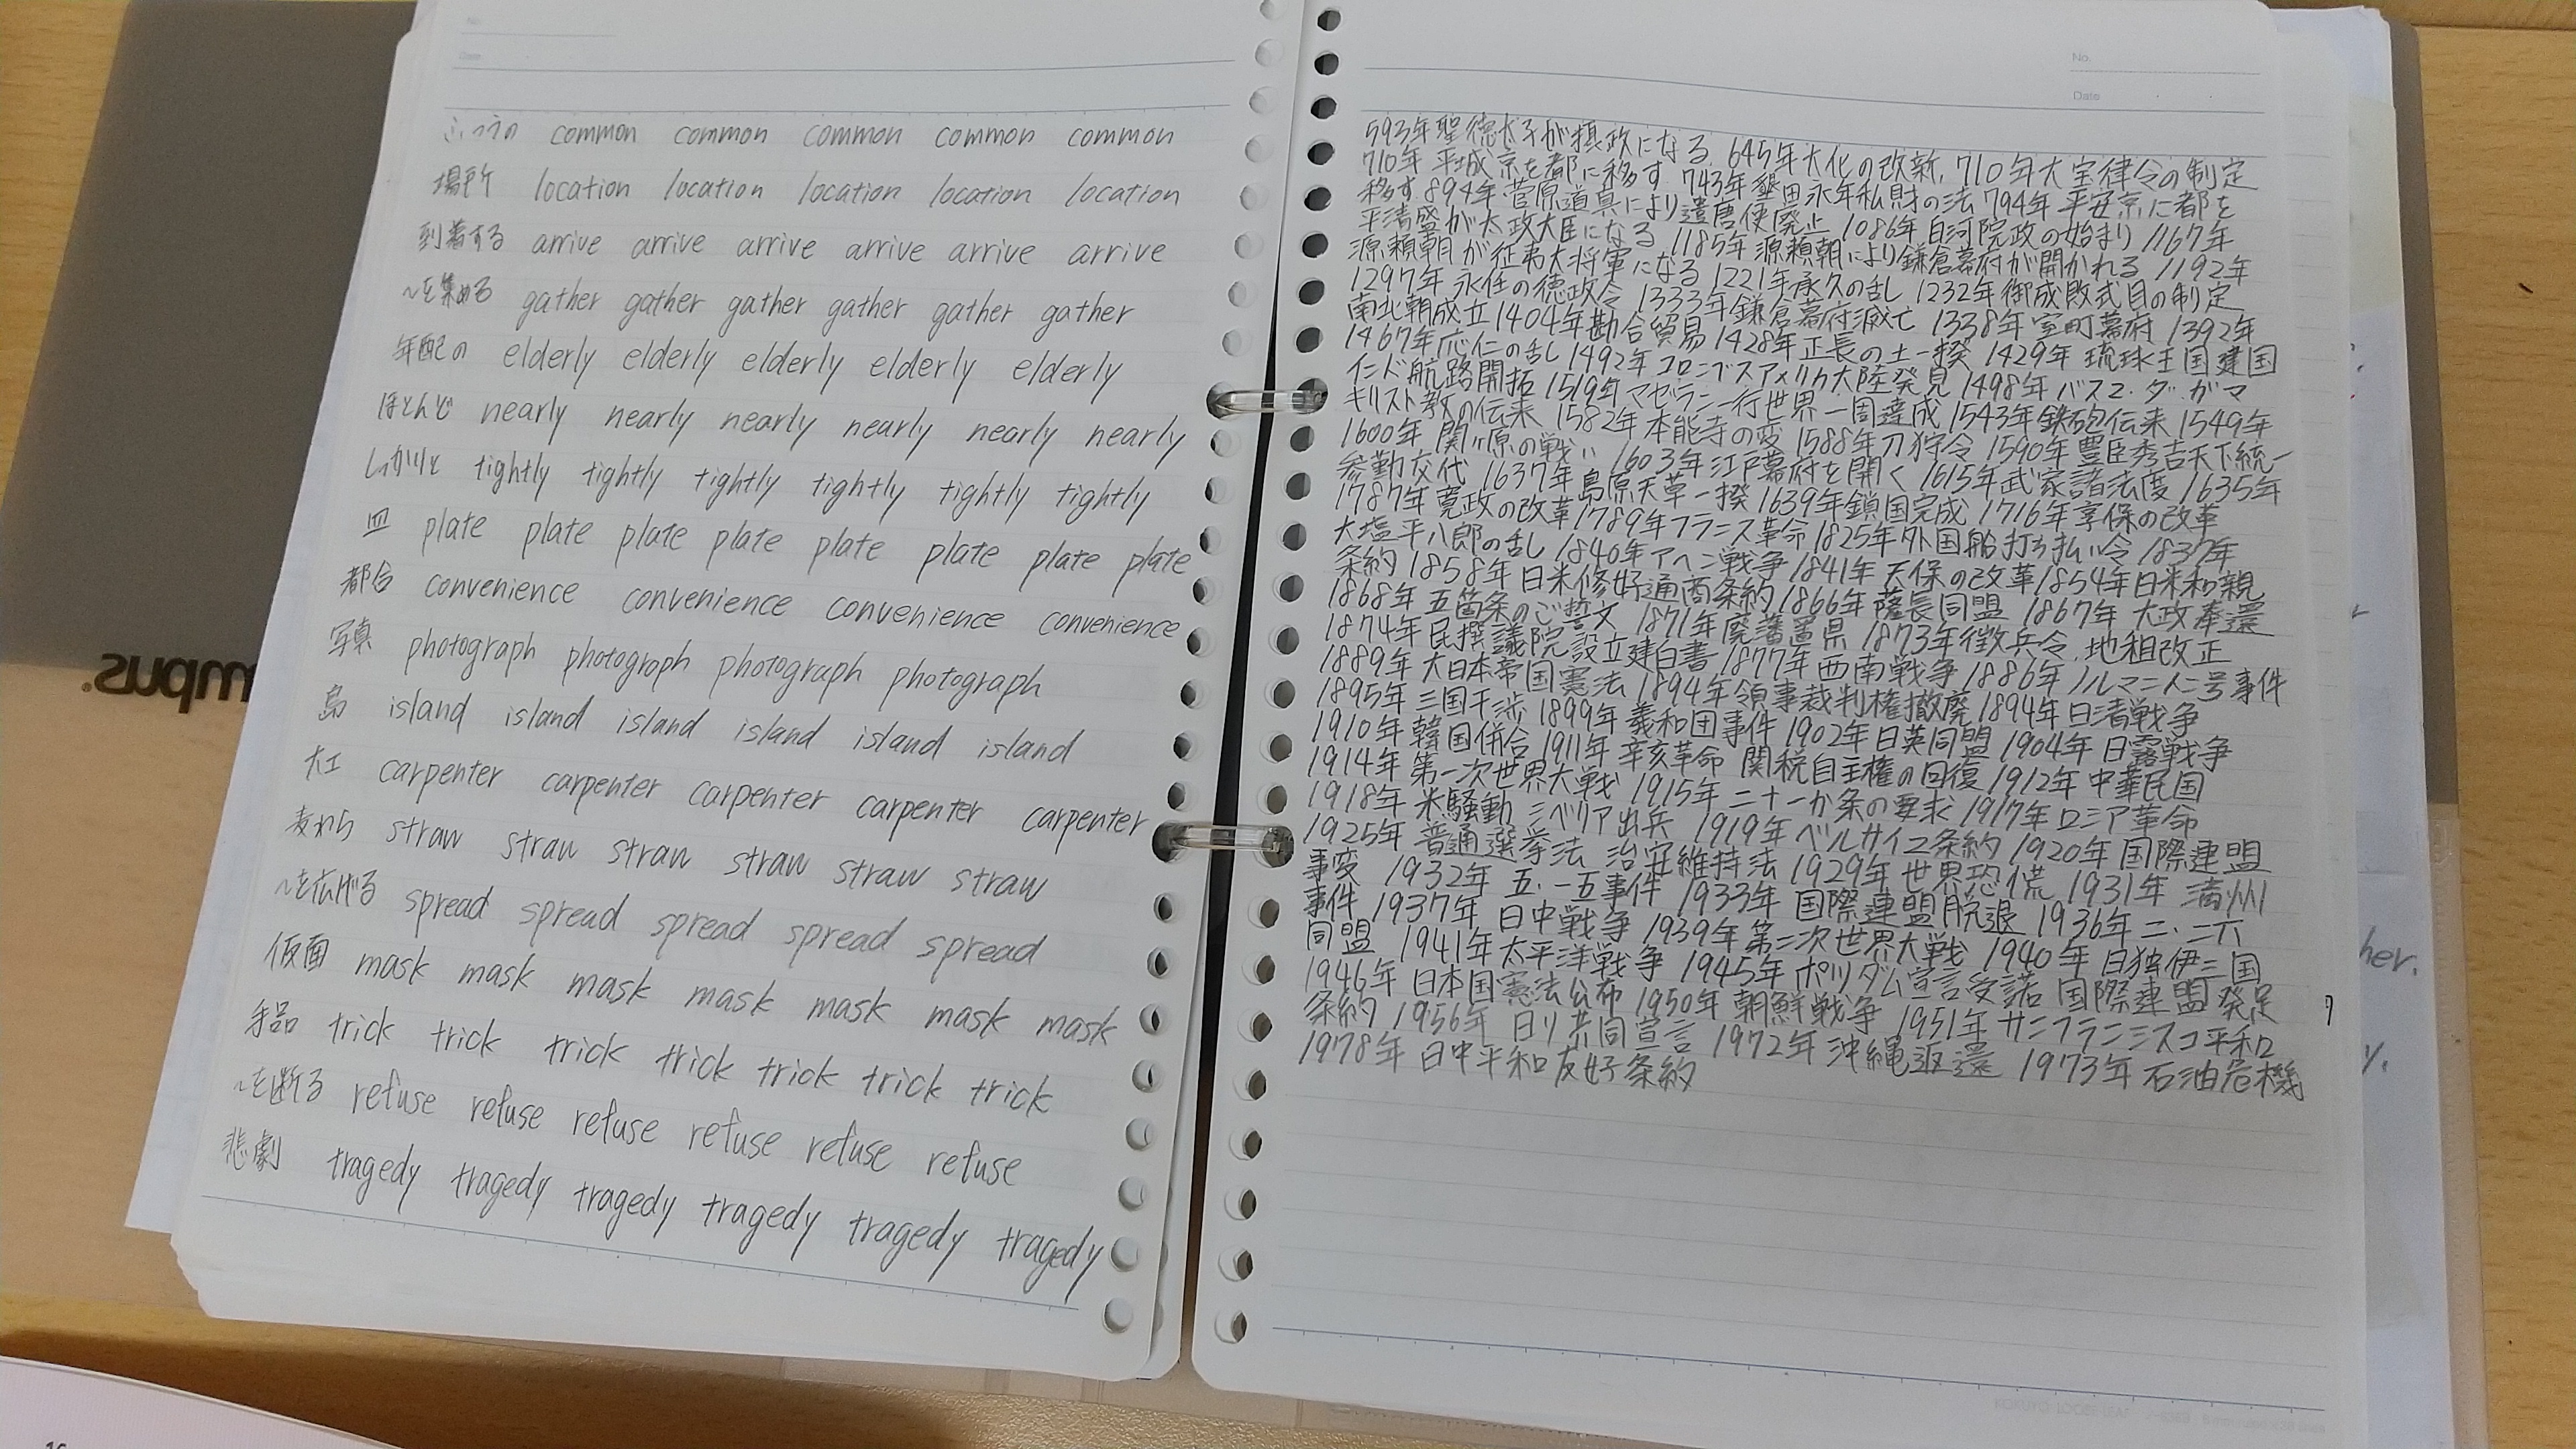 No.
Date
ふつうの common common common common common
場所 location location location location location
到着する arrive arrive arrive arrive arrive arrive
〜を集める gather gather gather gather gather gather
年配の elderly elderly elderly elderly elderly
ほとんど nearly nearly nearly nearly nearly nearly
しっかりと tightly tightly tightly tightly tightly tightly
皿 plate plate plate plate plate plate plate plate
都合 convenience convenience convenience convenience
写真 photograph photograph photograph photograph
島 island island island island island island
大工 carpenter carpenter carpenter carpenter carpenter
麦わら straw straw straw straw straw straw
〜を広げる spread spread spread spread spread
仮面 mask mask mask mask mask mask mask
手品 trick trick trick trick trick trick trick
〜を断る refuse refuse refuse refuse refuse refuse
悲劇 tragedy tragedy tragedy tragedy tragedy tragedy
No.
Date
593年聖徳太子が摂政になる, 645年大化の改新, 710年大宝律令の制定
710年 平城京を都に移す 743年墾田永年私財の法 794年 平安京に都を
移す 894年菅原道真により遣唐使廃止 1086年 白河院政の始まり 1167年
平清盛が太政大臣になる 1185年 源頼朝により鎌倉幕府が開かれる 1192年
源頼朝が征夷大将軍になる 1221年承久の乱 1232年御成敗式目の制定
1297年 永仁の徳政令 1333年鎌倉幕府滅亡 1338年室町幕府 1392年
南北朝成立 1404年勘合貿易 1428年正長の土一揆 1429年 琉球王国建国
1467年応仁の乱 1492年コロンブスアメリカ大陸発見 1498年バスコ・ダ・ガマ
インド航路開拓 1519年マゼラン一行世界一周達成 1543年鉄砲伝来 1549年
キリスト教の伝来 1582年本能寺の変 1588年刀狩令 1590年豊臣秀吉天下統一
1600年 関ヶ原の戦い 1603年江戸幕府を開く 1615年武家諸法度 1635年
参勤交代 1637年島原天草一揆 1639年鎖国完成 1716年享保の改革
1787年寛政の改革 1789年フランス革命 1825年外国船打ち払い令 1837年
大塩平八郎の乱 1840年アヘン戦争 1841年天保の改革 1854年日米和親
条約 1858年日米修好通商条約 1866年薩長同盟 1867年 大政奉還
1868年 五箇条のご誓文 1871年廃藩置県 1873年徴兵令, 地租改正
1874年民撰議院設立建白書 1877年西南戦争 1886年ノルマントン号事件
1889年 大日本帝国憲法 1894年領事裁判権撤廃 1894年日清戦争
1895年 三国干渉 1899年義和団事件 1902年日英同盟 1904年 日露戦争
1910年 韓国併合 1911年 辛亥革命 関税自主権の回復 1912年 中華民国
1914年 第一次世界大戦 1915年 二十一か条の要求 1917年ロシア革命
1918年 米騒動 シベリア出兵 1919年ベルサイユ条約 1920年 国際連盟
1925年 普通選挙法 治安維持法 1929年 世界恐慌 1931年 満州
事変 1932年 五・一五事件 1933年 国際連盟脱退 1936年 二・二六
事件 1937年 日中戦争 1939年第二次世界大戦 1940年 日独伊三国
同盟 1941年太平洋戦争 1945年 ポツダム宣言受諾 国際連盟発足
1946年 日本国憲法公布 1950年 朝鮮戦争 1951年 サンフランシスコ平和
条約 1956年 日ソ共同宣言 1972年 沖縄返還 1973年 石油危機
1978年 日中平和友好条約
her.
y.